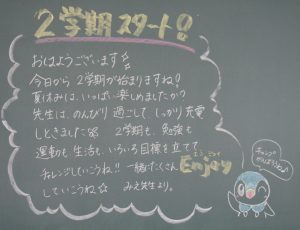 2学期スタート!!
おはようございます
今日から2学期が始まりますね!
夏休みは、いっぱい楽しめましたか?
先生は、のんびり過ごして しっかり充電
しときました 2学期も、勉強も
運動も 生活も いろいろ目標を立てて
チャレンジしていこうね!! 一緒にたくさん
Enjoy
していこうね☆ みえ先生より。
チャレンジ
がんばろうね♪